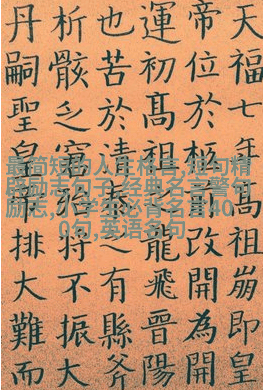 天福七年高祖崩即皇
帝位於柩前改開為開
運初高祖龍飛晉陽
也苦於清之有縣斧
析骸乏不振大
丹嗣聖皇排大難而
最简短的人生格言,短句精
辟励志句子,经典名言警句
励志,小学生必背名言40
0句,英语名句